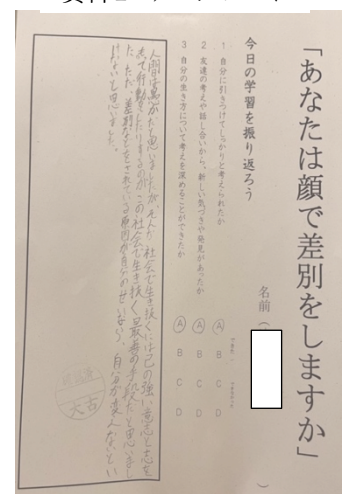 「あなたは顔で差別をしますか」
名前（　　）
今日の学習を振り返ろう
1 自分に引きつけてしっかりと考えられたか
A B C D
2 友達の考えや話し合いから、新しい気づきや発見があったか
A B C D
3 自分の生き方について考えを深めることができたか
A B C D
人間は愚かだと思いましたが、そんな社会で生き抜くには己の強い意志と志を
もって行動したりするのがこの社会で生き抜く最善の手段だと思いまし
た。ただ、差別などをされている原因が自分のせいなら、自分が変えないとい
けないと思いました。
大古